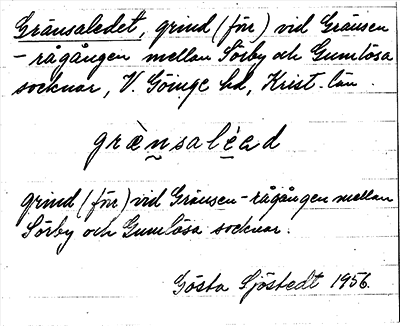 Gränsaledet, grind (förr) vid Gränsen
- rågången mellan Sörby och Gumlösa
socknar, V. Göinge hd, Krist. län.
grànsaléad
grind (förr) vid Gränsen - rågången mellan
Sörby och Gumlösa socknar.
Gösta Sjöstedt 1956.